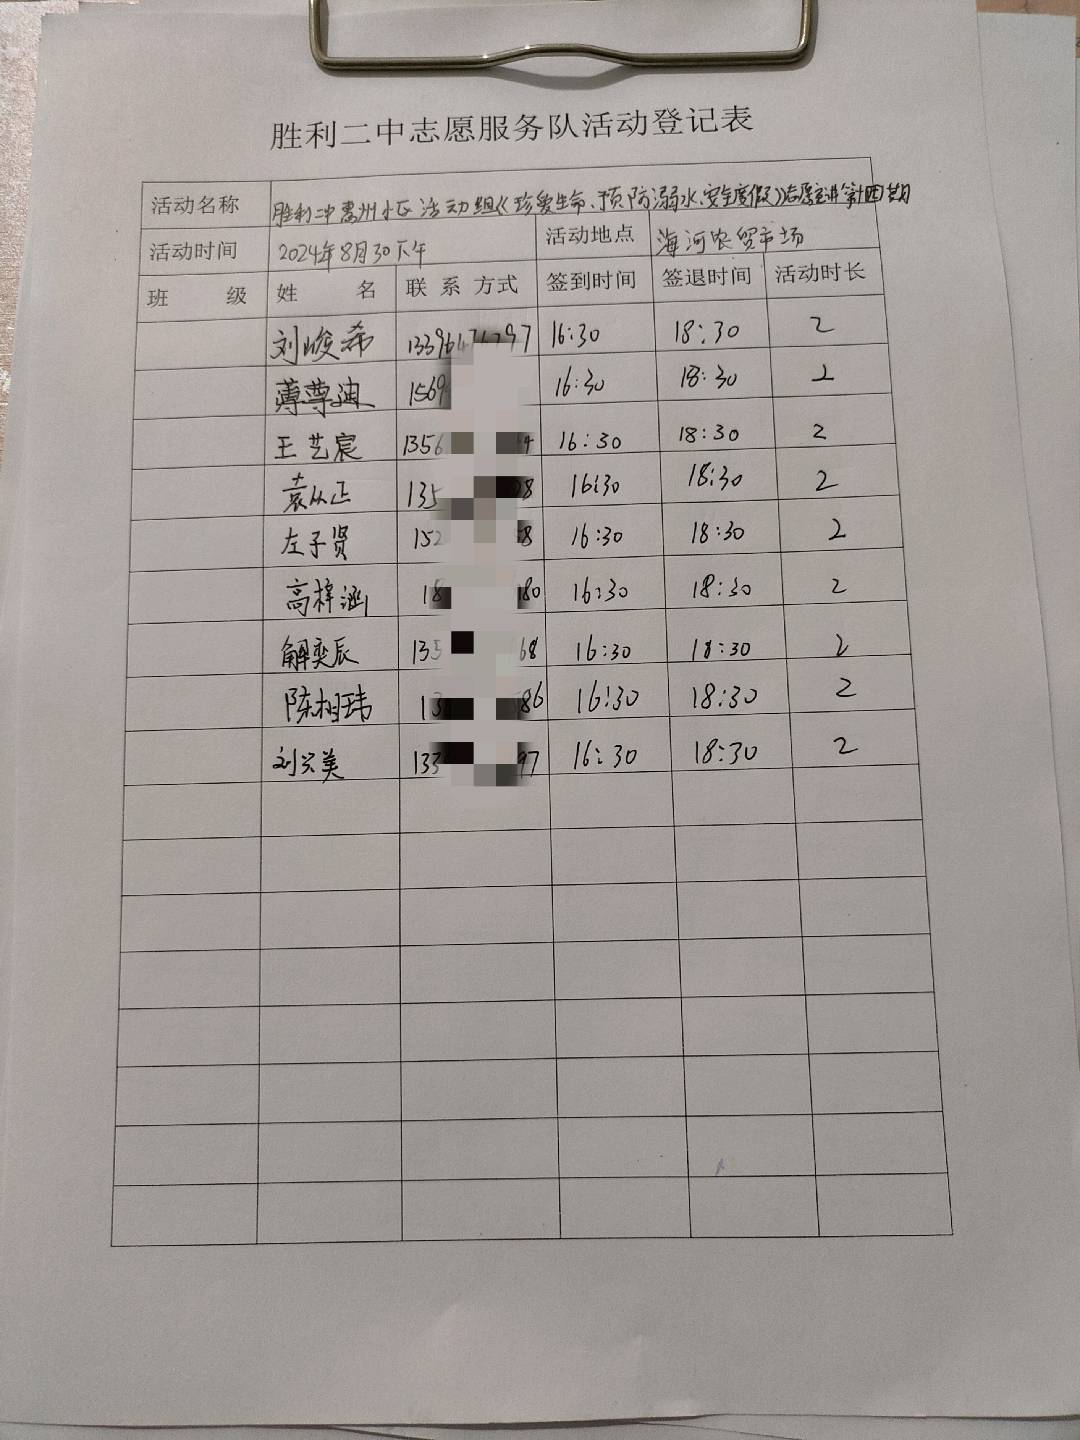 胜利二中志愿服务队活动登记表
活动名称 胜利二中惠州小区活动组《珍爱生命、预防溺水、安全度假》志愿宣讲第四期
活动时间 2024年8月30下午 活动地点 海河农贸市场
班 级 姓 名 联 系 方式 签到时间 签退时间 活动时长
刘峻希 16:30 18:30 2
薄尊迪 1569 16:30 18:30 2
王艺宸 1356 16:30 18:30 2
袁从正 135 16:30 18:30 2
左子贤 152 8 16:30 18:30 2
高梓涵 18 180 16:30 18:30 2
解奕辰 135 68 16:30 18:30 2
陈相玮 13 86 16:30 18:30 2
刘兴美 133 97 16:30 18:30 2